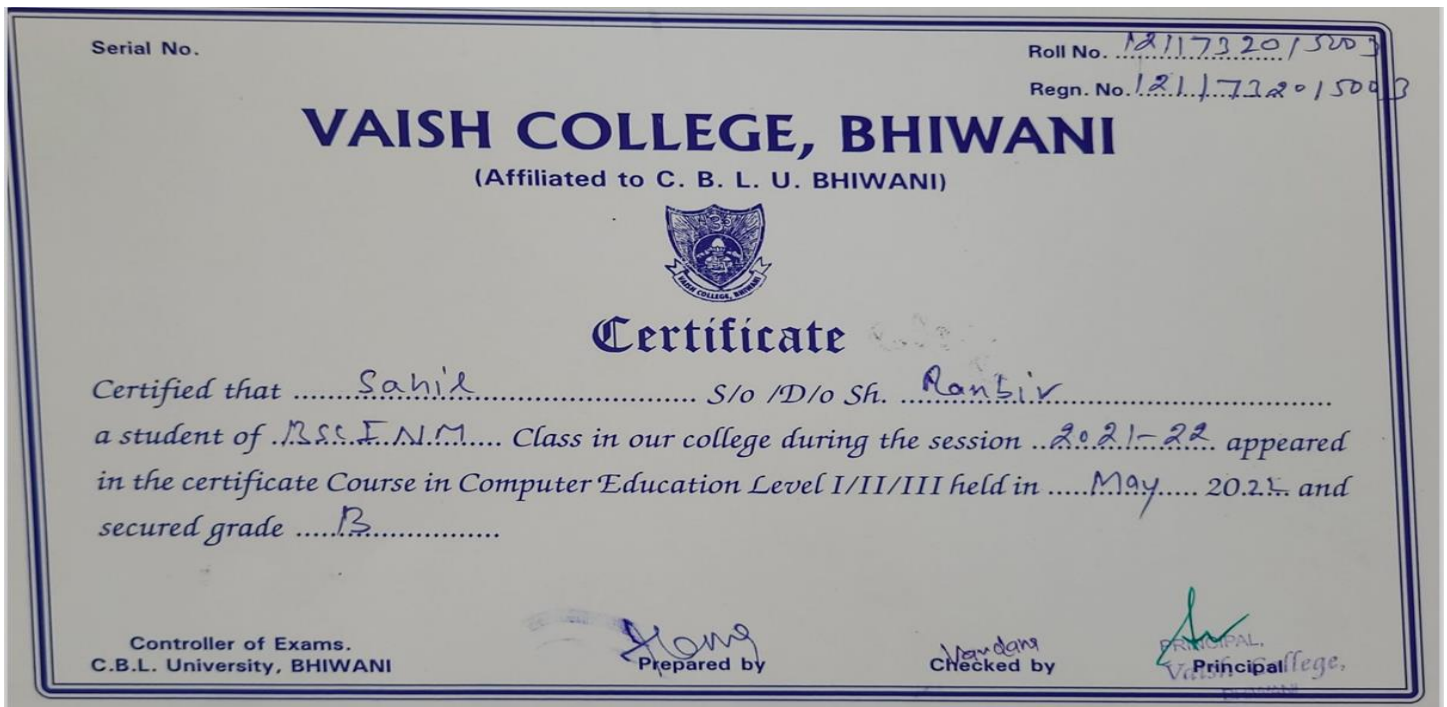 Serial No.
Roll No. 1211732015003
Regn. No. 1211732015003
VAISH COLLEGE, BHIWANI
(Affiliated to C. B. L. U. BHIWANI)
VAISH COLLEGE, BHIWANI
Certificate
Certified that Sahil S/o /D/o Sh. Ranbir
a student of BSc. I N.M. Class in our college during the session 2021-22 appeared
in the certificate Course in Computer Education Level I/II/III held in May 2022 and
secured grade B
Controller of Exams.
C.B.L. University, BHIWANI
Prepared by
Vandana
Checked by
PRINCIPAL,
Principal
Vaish College,
BHIWANI